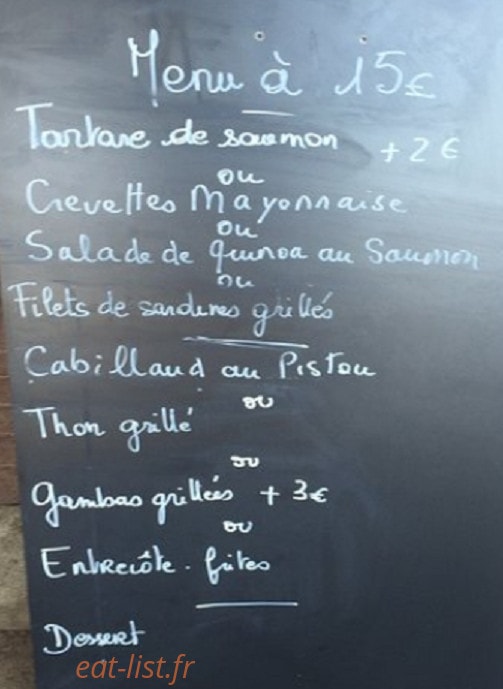 Menu à 15€
Tartare de saumon +2€
ou
Crevettes Mayonnaise
ou
Salade de quinoa au Saumon
ou
Filets de sardines grillés
Cabillaud au Pistou
ou
Thon grillé
ou
gambas grillées + 3€
ou
Entrecôte - frites
Dessert
eat-list.fr